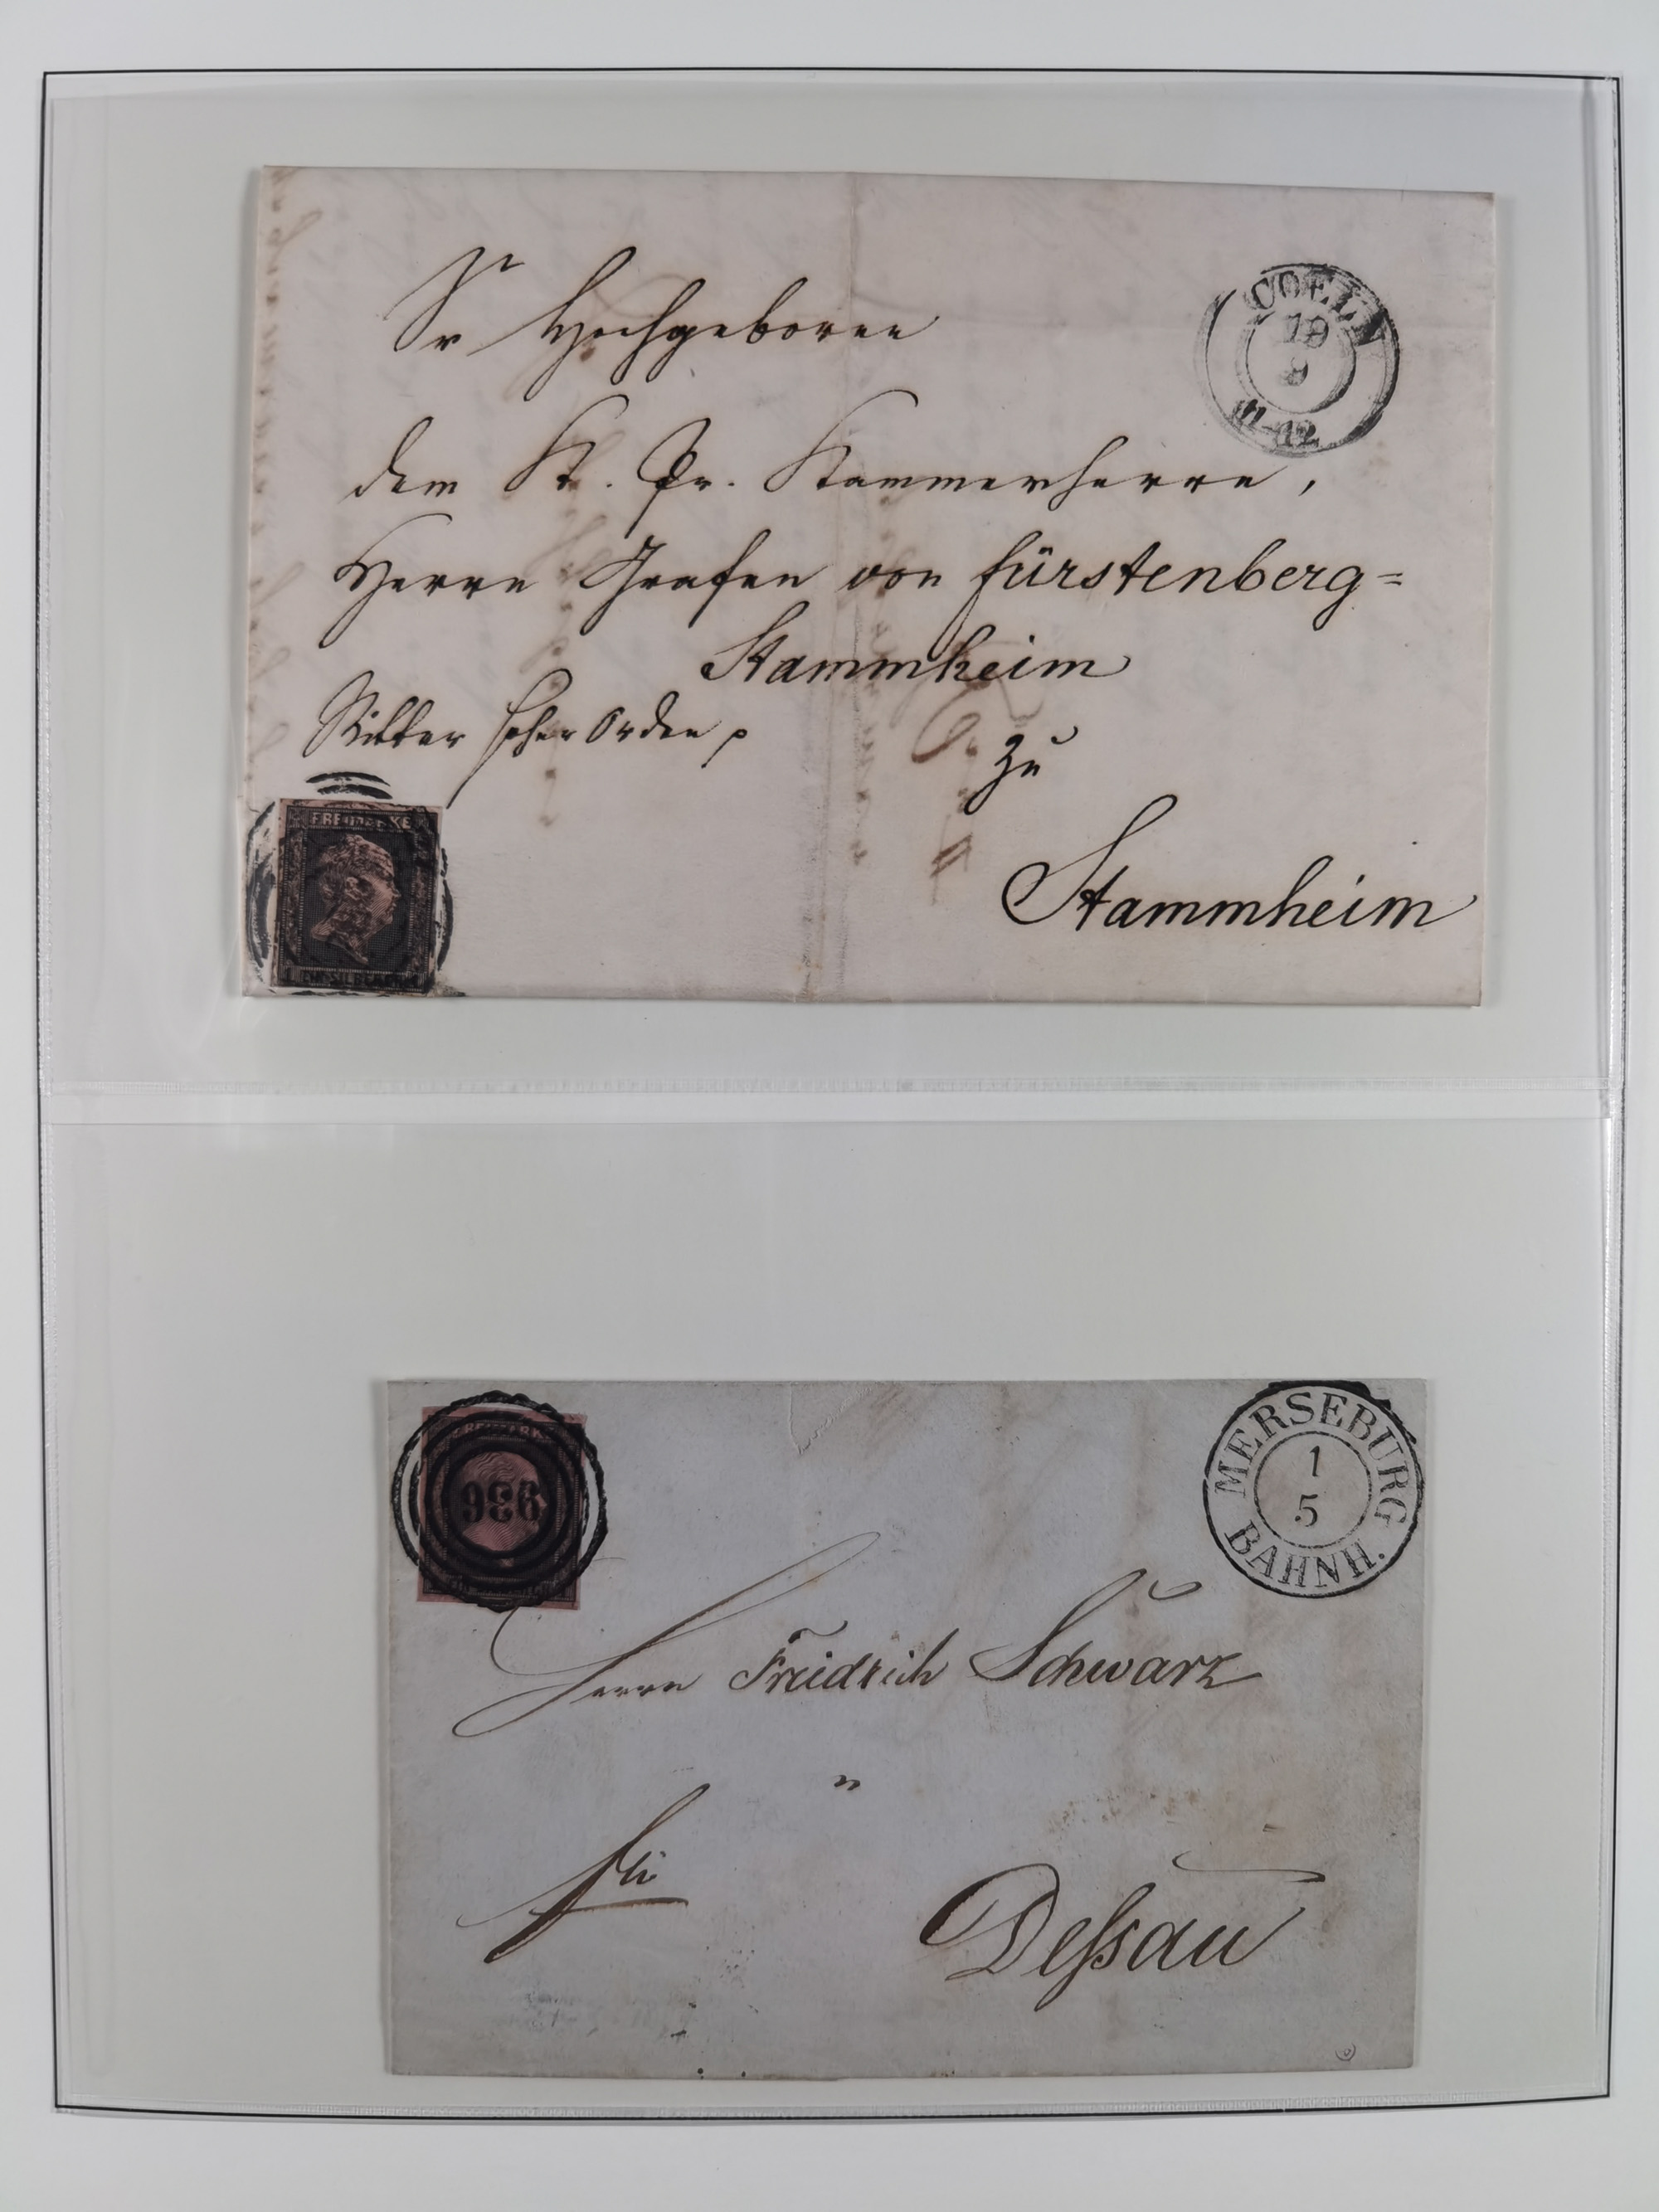 Sr Hochgeboren
COELN
19
9
11-12
dem K. Pr. Kammerherrn,
Herrn Grafen von Fürstenberg=
Stammheim
Ritter hoher Orden
zu
Stammheim
FREIMARKE
SILBERGR.
MERSEBURG
1
5
BAHNH.
936
Herrn Freidrich Schwarz
fr
Dessau